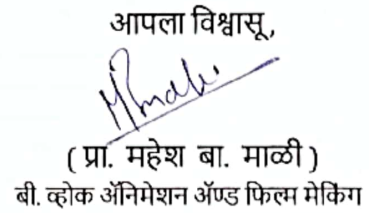 आपला विश्वासू,
( प्रा. महेश बा. माळी )
बी. व्होक ॲनिमेशन ॲण्ड फिल्म मेकिंग